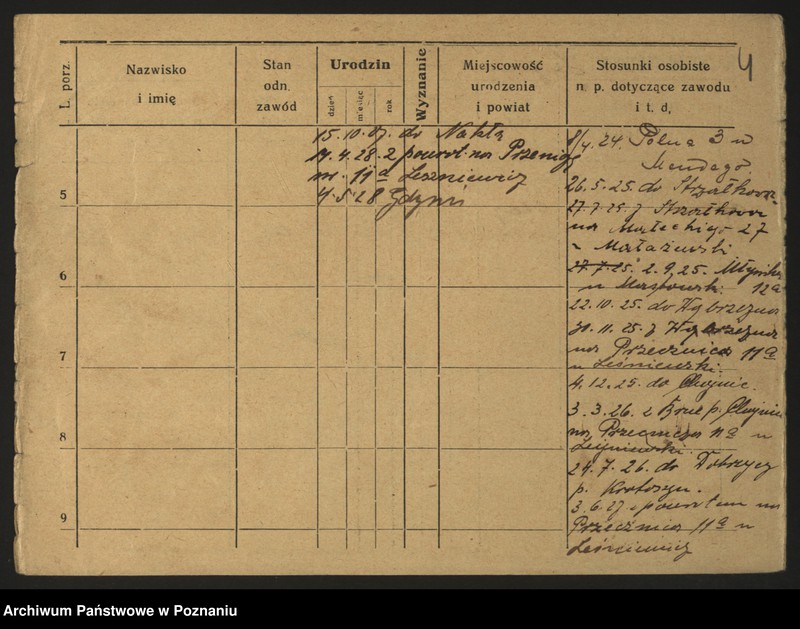 4
L. porz.
Nazwisko
i imię
Stan
odn.
zawód
Urodzin
dzień
miesiąc
rok
Wyznanie
Miejscowość
urodzenia
i powiat
Stosunki osobiste
n. p. dotyczące zawodu
i t. d.
5
6
7
8
9
15.10.27. do Nakła
14.4.28. z powrot. na
m. 11a Leszniewicz
4.5.28 Gdynia
8/4.24. Polna 3 u
Mendego
26.5.25. do Strzałkowa
27.7.25. z Strzałkowa
na Małeckiego 27
u
27.7.25. 2.9.25.
u 12a
22.10.25. do Wąbrzeźna
30.11.25. z Wąbrzeźna
na Przecznica 11a
u Leśniewski.
4.12.25. do Chojnic.
3.3.26. z p. Chojnice
na Przecznica 11a u
Leśniewski.
24.7.26. do Dobrzycy
p. Krotoszyn.
3.6.27. z powrotem na
Przecznica 11a u
Leśniewicz
Archiwum Państwowe w Poznaniu